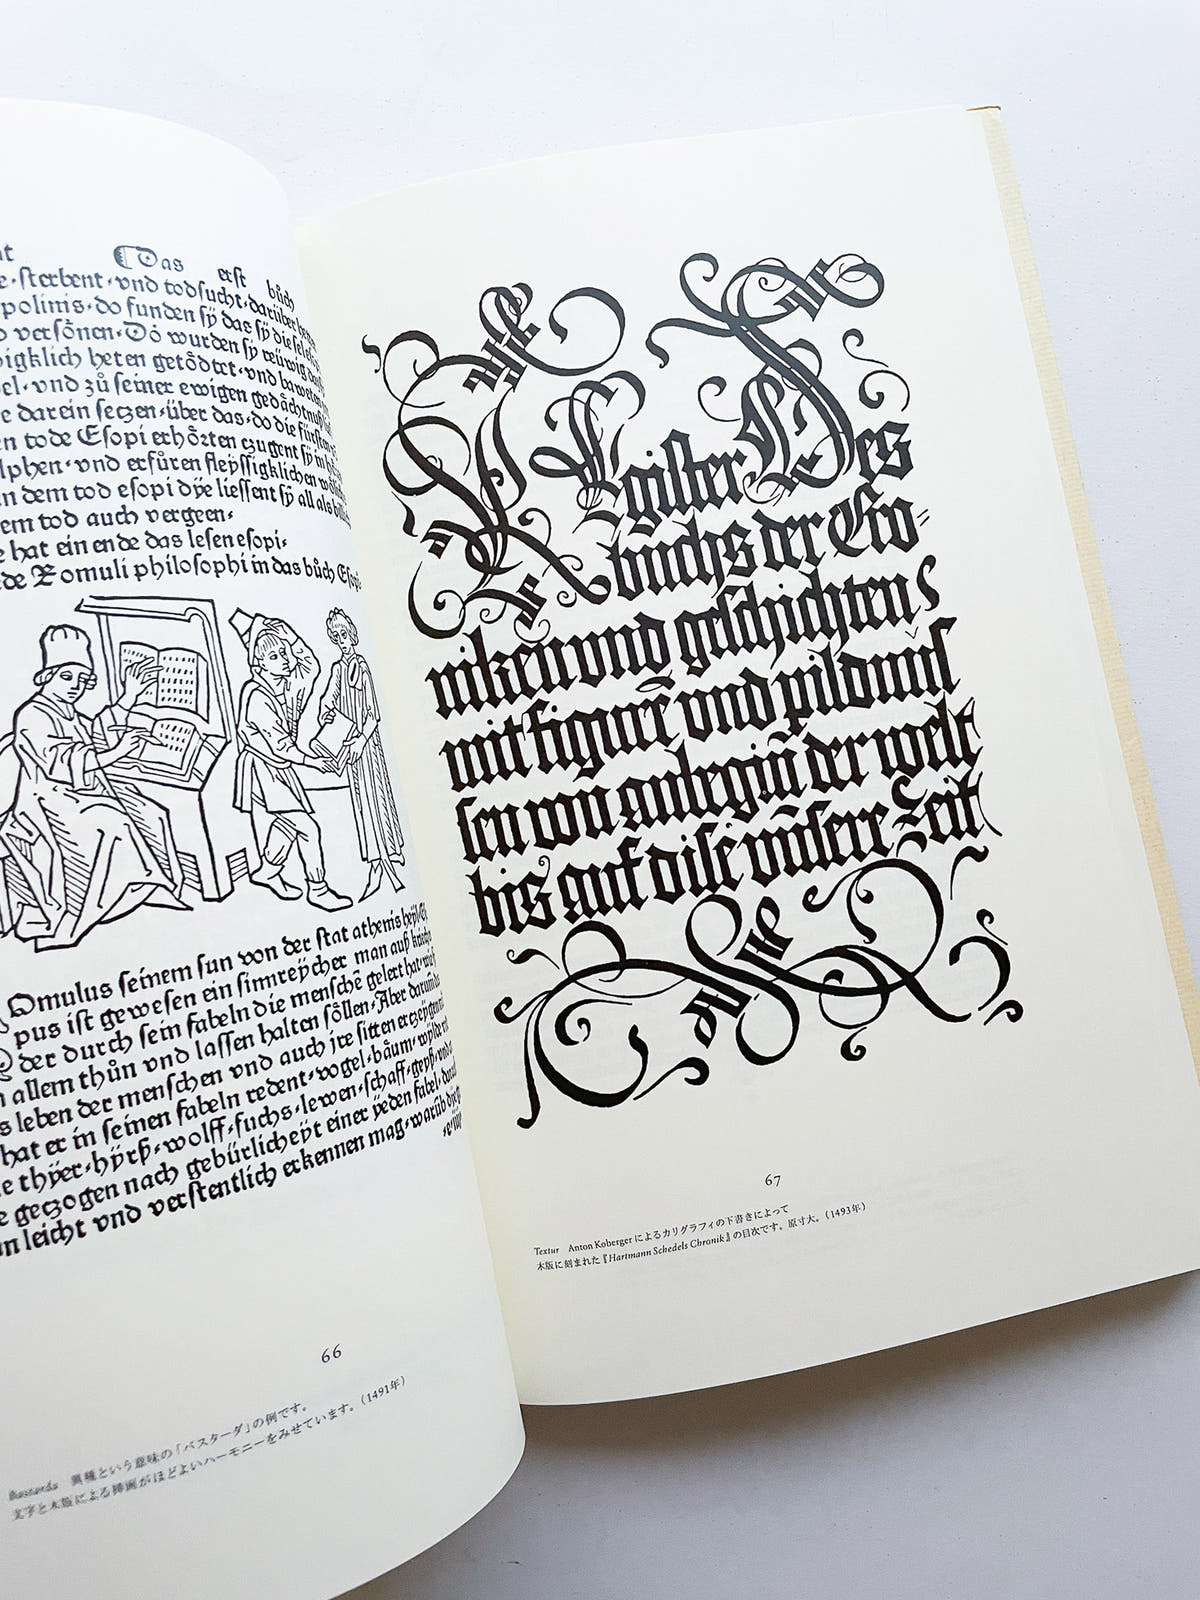 Das erst bůch
sterbent·vnd todsucht·darüber
polinis·do funden sÿ das sÿ die
versŏnen·Dŏ wurden sÿ reüwig
igklich heten getŏdtet·vnd
el·vnd zů seiner ewigen gedåchtnuß
e darein seczen·über das·do die fürsten
en tode Esopi erhŏrten czugent sÿ in
lphen·vnd erfůren fleyssigklichen
n dem tod esopi dÿe liessent sÿ all als
em tod auch vergeen·
e hat ein ende das lesen esopi·
de Romuli philosophi in das bůch Esopi
Omulus seinem sun von der stat athenis
pus ist gewesen ein sinnreÿcher man auß
der durch sein fabeln die menschē gelert hat·
n allem thůn vnd lassen halten sŏllen·Aber
s leben der menschen vnd auch jre sitten erczeÿgen
hat er in seinen fabeln redent·vogel·båum·
e thÿer·hÿrß·wolff·fuchs·lewen·schaff·
e geczogen nach gebürlicheÿt einer ÿeden fabel·
n leicht vnd verstentlich erkennen mag·warüb
66
Bastarda 異種という意味の「バスターダ」の例です。
文字と木版による挿画がほどよいハーモニーをみせています。(1491年)
Register Des
buchs der Cro-
niken vnd geschichten
mit figurē vnd pildnus
sen von anbegiñ der welt
bis auf dise vnsere Zeit
67
Textur Anton Koberger によるカリグラフィの下書きによって
木版に刻まれた『Hartmann Schedels Chronik』の目次です。原寸大。(1493年)